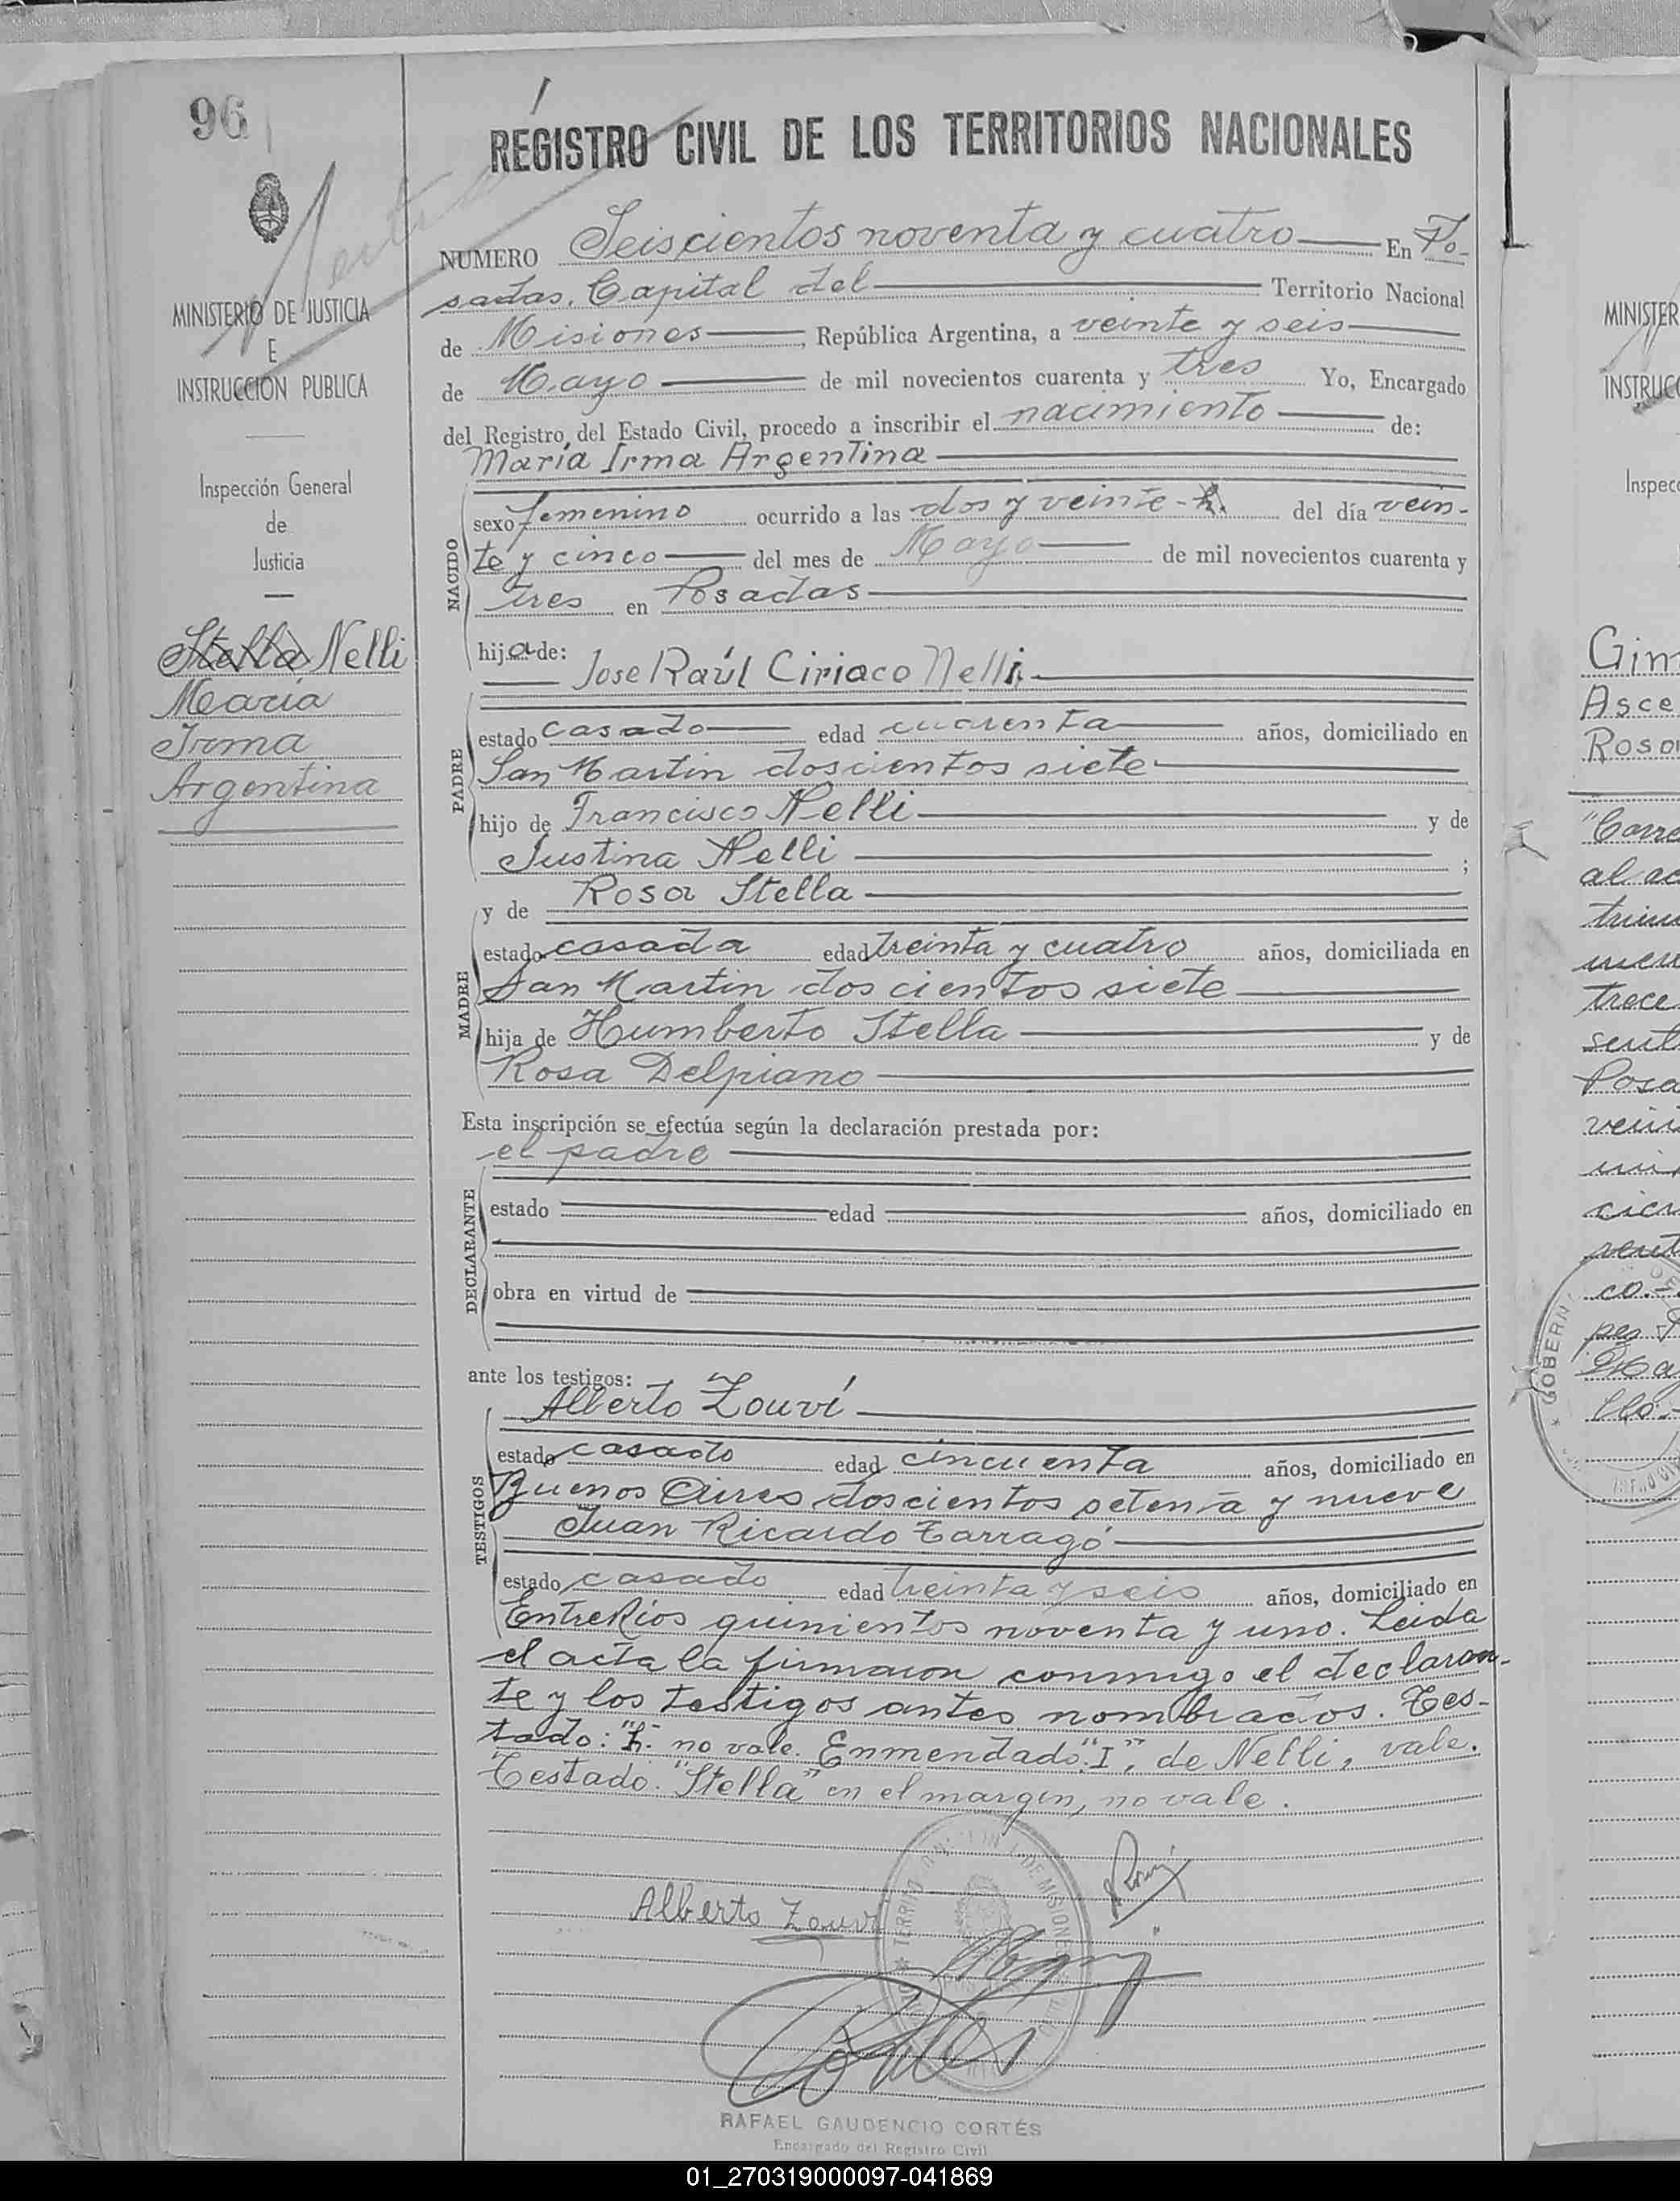 96
REGISTRO CIVIL DE LOS TERRITORIOS NACIONALES
MINISTERIO DE JUSTICIA
E
INSTRUCCIÓN PUBLICA
Inspección General
de
Justicia
Stella Nelli
María
Irma
Argentina
NUMERO Seiscientos noventa y cuatro En Po-
sadas, Capital del Territorio Nacional
de Misiones, República Argentina, a veinte y seis
de Mayo de mil novecientos cuarenta y tres Yo, Encargado
del Registro del Estado Civil, procedo a inscribir el nacimiento de:
María Irma Argentina
NACIDO
sexo femenino ocurrido a las dos y veinte - h. del día vein-
te y cinco del mes de Mayo de mil novecientos cuarenta y
tres en Posadas
hija de:
Jose Raúl Ciriaco Nelli
PADRE
estado casado edad cuarenta años, domiciliado en
San Martin doscientos siete
hijo de Francisco Nelli y de
Justina Nelli ;
y de Rosa Stella
MADRE
estado casada edad treinta y cuatro años, domiciliada en
San Martin doscientos siete
hija de Humberto Stella y de
Rosa Delpiano
Esta inscripción se efectúa según la declaración prestada por:
el padre
DECLARANTE
estado edad años, domiciliado en
obra en virtud de
ante los testigos:
Alberto Zouví
TESTIGOS
estado casado edad cincuenta años, domiciliado en
Buenos Aires doscientos setenta y nueve
Juan Ricardo Tarragó
estado casado edad treinta y seis años, domiciliado en
Entre Ríos quinientos noventa y uno. Leida
el acta la firmaron conmigo el declaran-
te y los testigos antes nombrados. Tes-
tado: "h" no vale. Enmendado: "I", de Nelli, vale.
Testado: "Stella" en el margen, no vale.
Alberto Zouví
RAFAEL GAUDENCIO CORTÉS
Encargado del Registro Civil
MINISTER
INSTRUC
Inspec
Asce
al ac
trece
GOBERN
01_270319000097-041869